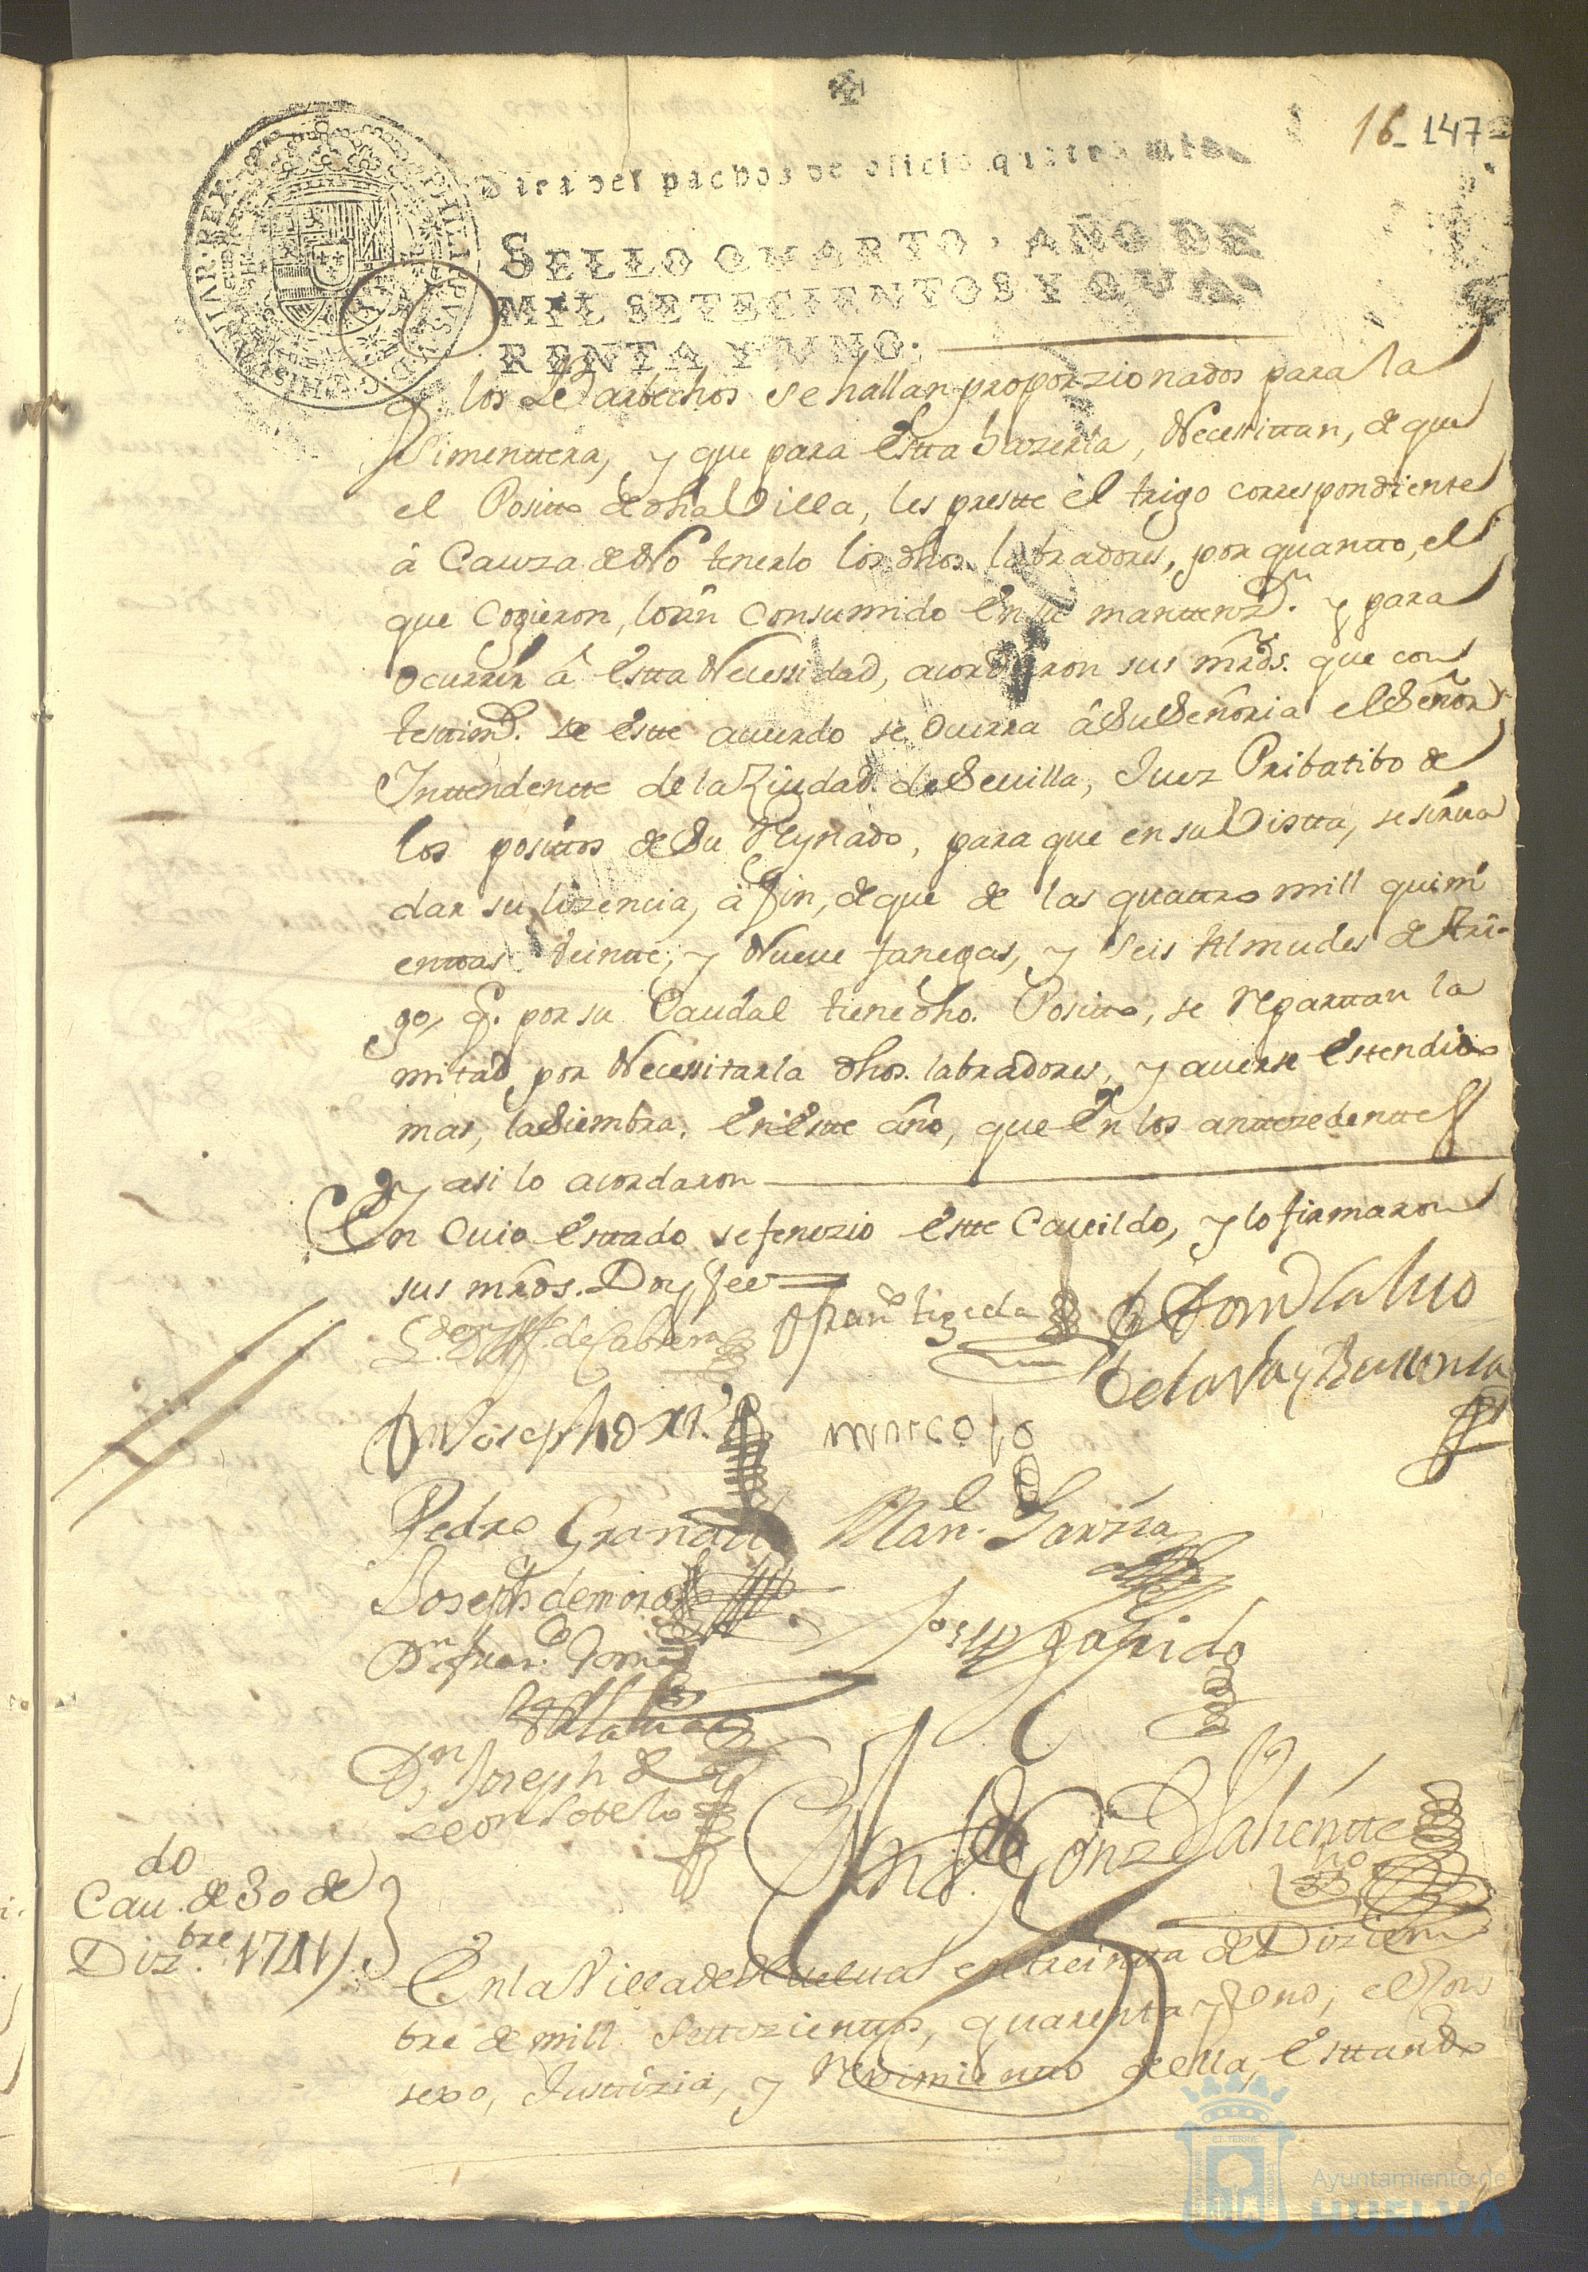 16_ 147
Para despachos de oficio quatro mrs.
SELLO QVARTO, AÑO DE
MIL SETECIENTOS Y QVA
RENTA Y VNO.
PHILIPVS V D G HISPANIAR REX
los Barbechos se hallan proporzionados para la
Simenttera, y que para Estta hazerla, Necessittan, de que
el Positto de dha Villa, les prestte el trigo correspondiente
à Cauza de No tenerlo los dhos. labradores, por quantto, el
que Cogieron, lo án Consumido En su mantenz.n y para
Ocurrir â Estta Necessidad, acordaron sus mrds. que con
testtim.o de Estte acuerdo se Ocurra â Su Señoria el Señor
Inttendentte de la Ziudad. de Seuilla, Juez Pribatibo de
los posittos de Su Reynado, para que en su Vistta, se sirua
dar su lizencia, à fin, de que de las quattro mill quini
enttas Veintte, y Nueve fanegas, y Seis Almudes de Tri-
go, q. por su Caudal tiene dho. Positto, se reparttan la
mitad, por Necessitarla dhos. labradores, y averse Estendido
mas, la Siembra, En Estte año, que En los anttezedenttes
y asi lo acordaron
En Cuio Esttado se fenezio Estte Cavildo, y lo firmaron
sus mrds. Doy fee
L.do Dn de Cabrera Fran.co tigeda
Marcos
Pedro Granado Man.l Garzia
Joseph de mora
Joseph garrido
Dn Fran.co
Dn Joseph de
Leon Sotelo
Gonz Valientte
Cau.do de 30 de
Diz.bre 1741
En la Villa de Huelua en treintta de Diziem
bre de mill Settezienttos, quarenta y Uno, el Con
sexo, Justtizia, y Reximientto de Ella, Esttando
Ayuntamiento de
HUELVA